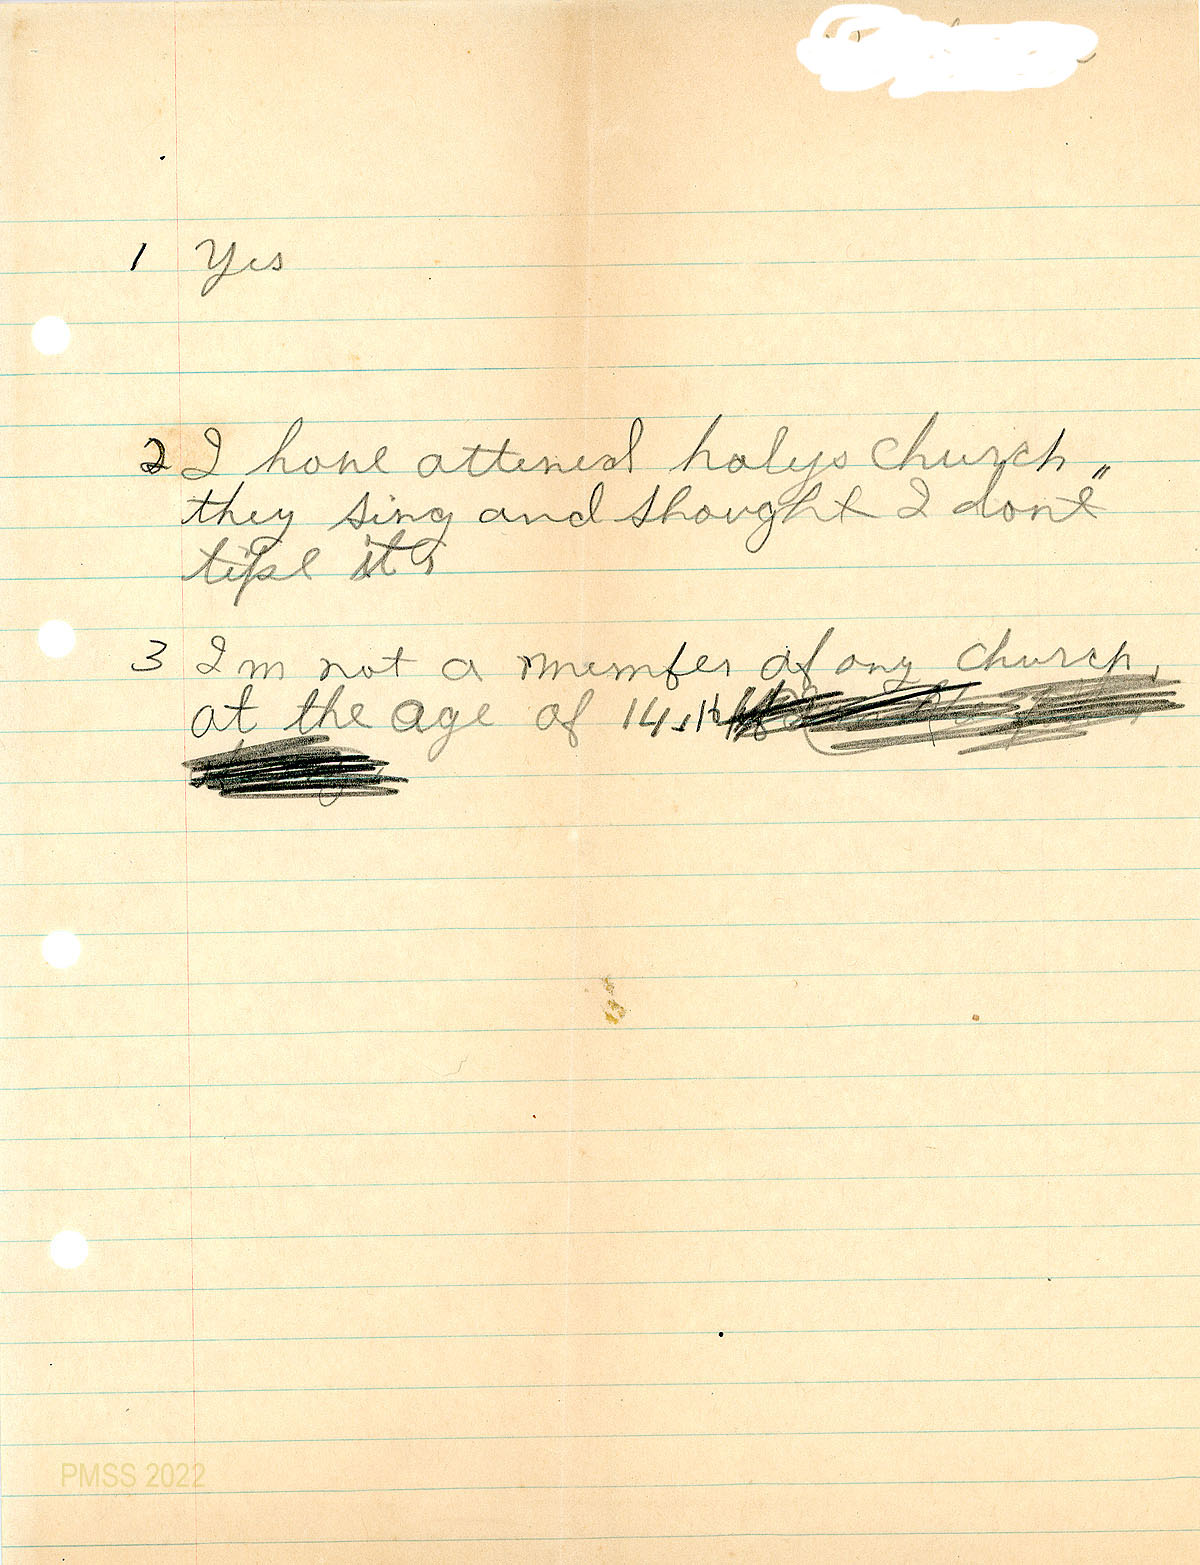 1 Yes
2 I have attened holys church"
they sing and shought I dont
like it.
3 I m not a member of any church.
at the age of 14.
PMSS 2022